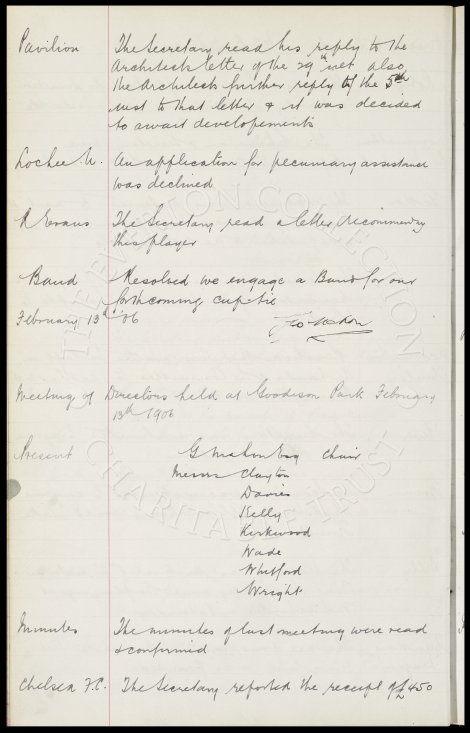 Pavilion The Secretary read his reply to the
Architects letter of the 29th ult also
the Architects further reply of the 5th
inst to that letter & it was decided
to await developements
Lochee U. An application for pecuniary assistance
was declined
R Evans The Secretary read a letter recommending
this player
Band Resolved we engage a Band for our
forthcoming cup tie
February 13th '06 Geo Mahon
Meeting of Directors held at Goodison Park February
13th 1906
Present G Mahon Esq chair
Messrs Clayton
Davies
Kelly
Kirkwood
Wade
Whitford
Wright
Minutes The minutes of last meeting were read
& confirmed
Chelsea F.C. The Secretary reported the receipt of £450
THE EVERTON COLLECTION
CHARITABLE TRUST